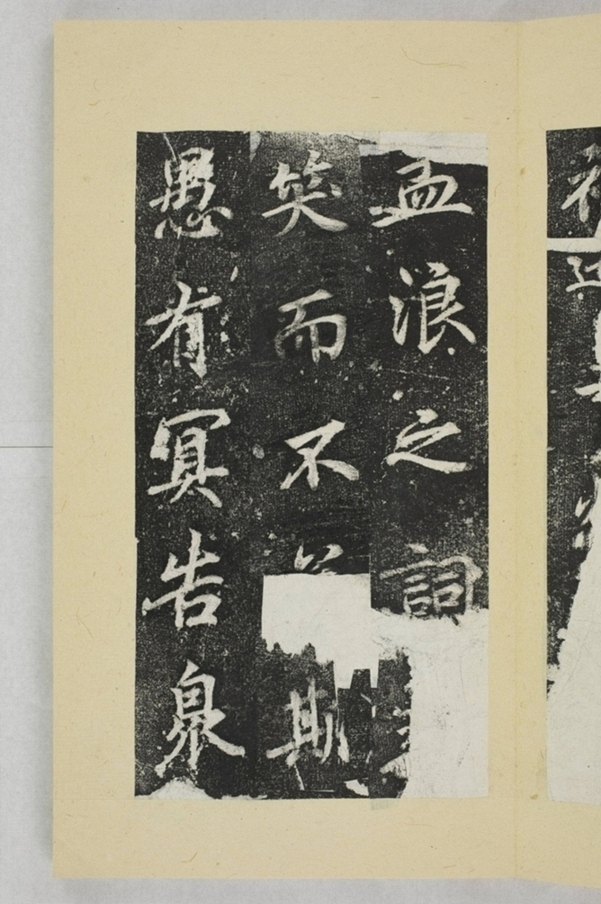 孟浪之詞
笑而不斯
愚有冥告臮